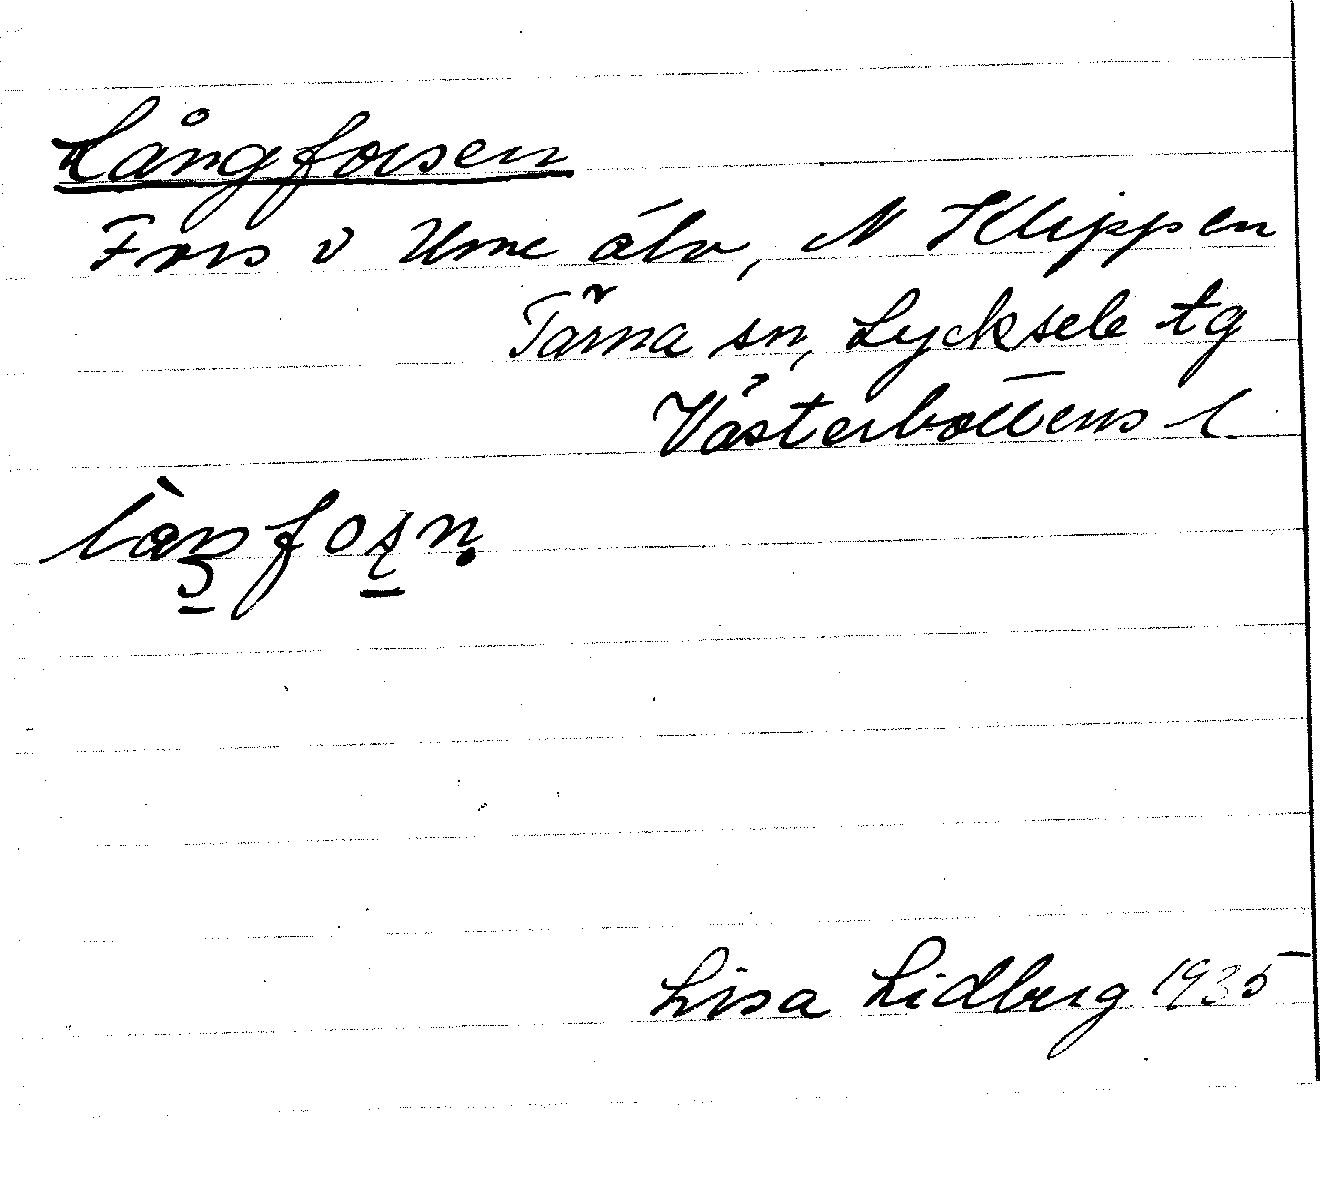 Långforsen
Fors i Ume älv, N Klippen
Tärna sn, Lycksele tg
Västerbottens l.
Lisa Lidberg 1935